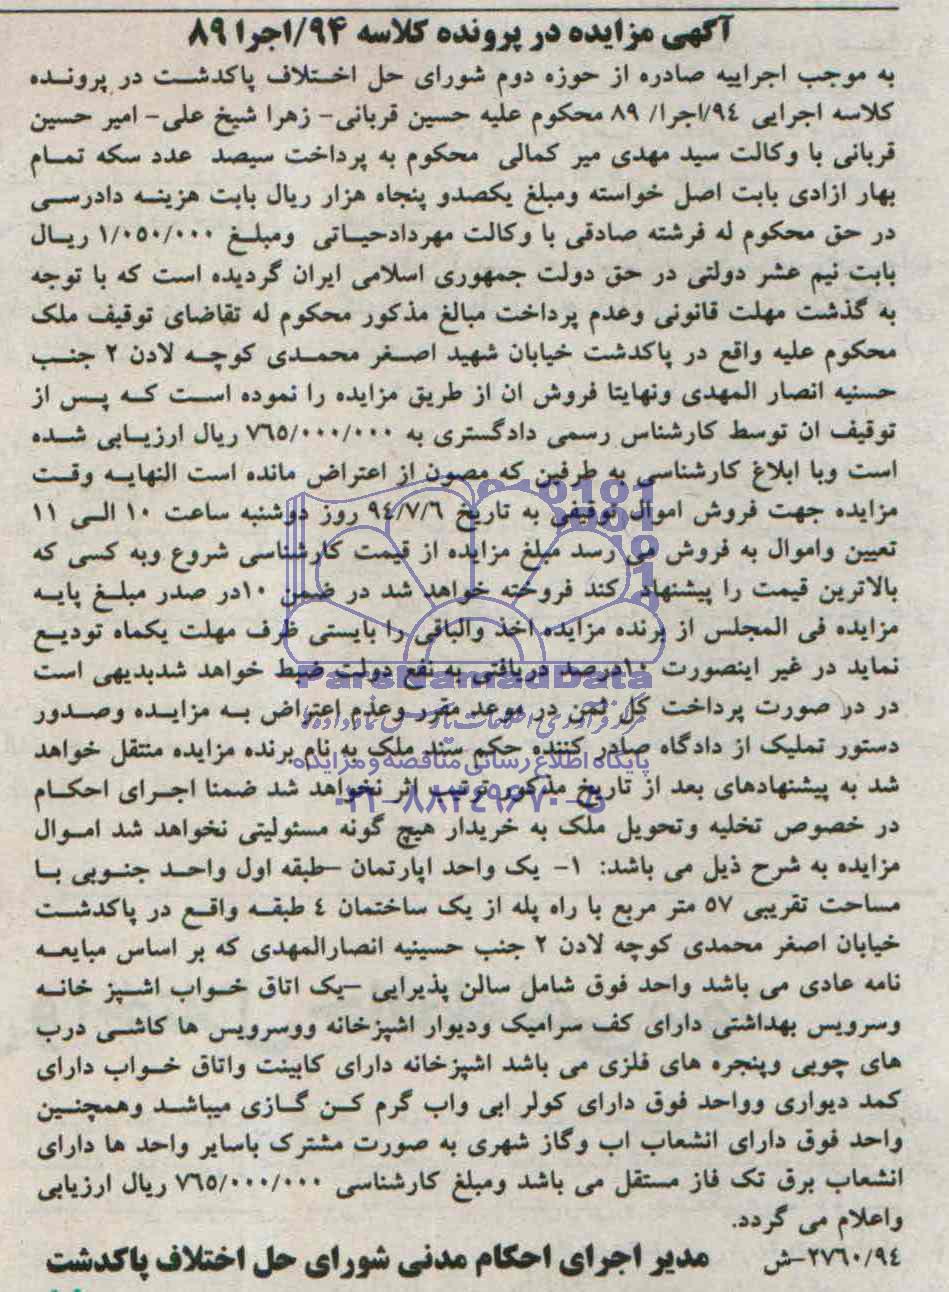 آگهی مزایده در پرونده کلاسه ۹۴/اجرا ۸۹
به موجب اجراییه صادره از حوزه دوم شورای حل اختلاف پاکدشت در پرونده
کلاسه اجرایی ۹۴/اجرا/ ۸۹ محکوم علیه حسین قربانی- زهرا شیخ علی- امیر حسین
قربانی با وکالت سید مهدی میر کمالی محکوم به پرداخت سیصد عدد سکه تمام
بهار ازادی بابت اصل خواسته ومبلغ یکصدو پنجاه هزار ریال بابت هزینه دادرسی
در حق محکوم له فرشته صادقی با وکالت مهردادحیاتی ومبلغ ۱/۰۵۰/۰۰۰ ریال
بابت نیم عشر دولتی در حق دولت جمهوری اسلامی ایران گردیده است که با توجه
به گذشت مهلت قانونی وعدم پرداخت مبالغ مذکور محکوم له تقاضای توقیف ملک
محکوم علیه واقع در پاکدشت خیابان شهید اصغر محمدی کوچه لادن ۲ جنب
حسنیه انصار المهدی ونهایتا فروش ان از طریق مزایده را نموده است که پس از
توقیف ان توسط کارشناس رسمی دادگستری به ۷۶۵/۰۰۰/۰۰۰ ریال ارزیابی شده
است وبا ابلاغ کارشناسی به طرفین که مصون از اعتراض مانده است النهایه وقت
مزایده جهت فروش اموال توقیفی به تاریخ ۹۴/۷/۶ روز دوشنبه ساعت ۱۰ الی ۱۱
تعیین واموال به فروش می رسد مبلغ مزایده از قیمت کارشناسی شروع وبه کسی که
بالاترین قیمت را پیشنهاد کند فروخته خواهد شد در ضمن ۱۰در صدر مبلغ پایه
مزایده فی المجلس از برنده مزایده اخذ والباقی را بایستی ظرف مهلت یکماه تودیع
نماید در غیر اینصورت ۱۰درصد دریافتی به نفع دولت ضبط خواهد شدبدیهی است
در در صورت پرداخت کل ثمن در موعد مقرر وعدم اعتراض به مزایده وصدور
دستور تملیک از دادگاه صادر کننده حکم سند ملک به نام برنده مزایده منتقل خواهد
شد به پیشنهادهای بعد از تاریخ مذکور ترتیب اثر نخواهد شد ضمنا اجرای احکام
در خصوص تخلیه وتحویل ملک به خریدار هیچ گونه مسئولیتی نخواهد شد اموال
مزایده به شرح ذیل می باشد: ۱- یک واحد اپارتمان –طبقه اول واحد جنوبی با
مساحت تقریبی ۵۷ متر مربع با راه پله از یک ساختمان ۴ طبقه واقع در پاکدشت
خیابان اصغر محمدی کوچه لادن ۲ جنب حسینیه انصارالمهدی که بر اساس مبایعه
نامه عادی می باشد واحد فوق شامل سالن پذیرایی –یک اتاق خواب اشپز خانه
وسرویس بهداشتی دارای کف سرامیک ودیوار اشپزخانه ووسرویس ها کاشی درب
های چوبی وپنجره های فلزی می باشد اشپزخانه دارای کابینت واتاق خواب دارای
کمد دیواری وواحد فوق دارای کولر ابی واب گرم کن گازی میباشد وهمچنین
واحد فوق دارای انشعاب اب وگاز شهری به صورت مشترک باسایر واحد ها دارای
انشعاب برق تک فاز مستقل می باشد ومبلغ کارشناسی ۷۶۵/۰۰۰/۰۰۰ ریال ارزیابی
واعلام می گردد.
۲۷۶۰/۹۴-ش مدیر اجرای احکام مدنی شورای حل اختلاف پاکدشت
ParsNamadData
پایگاه اطلاع رسانی مناقصه و مزایده